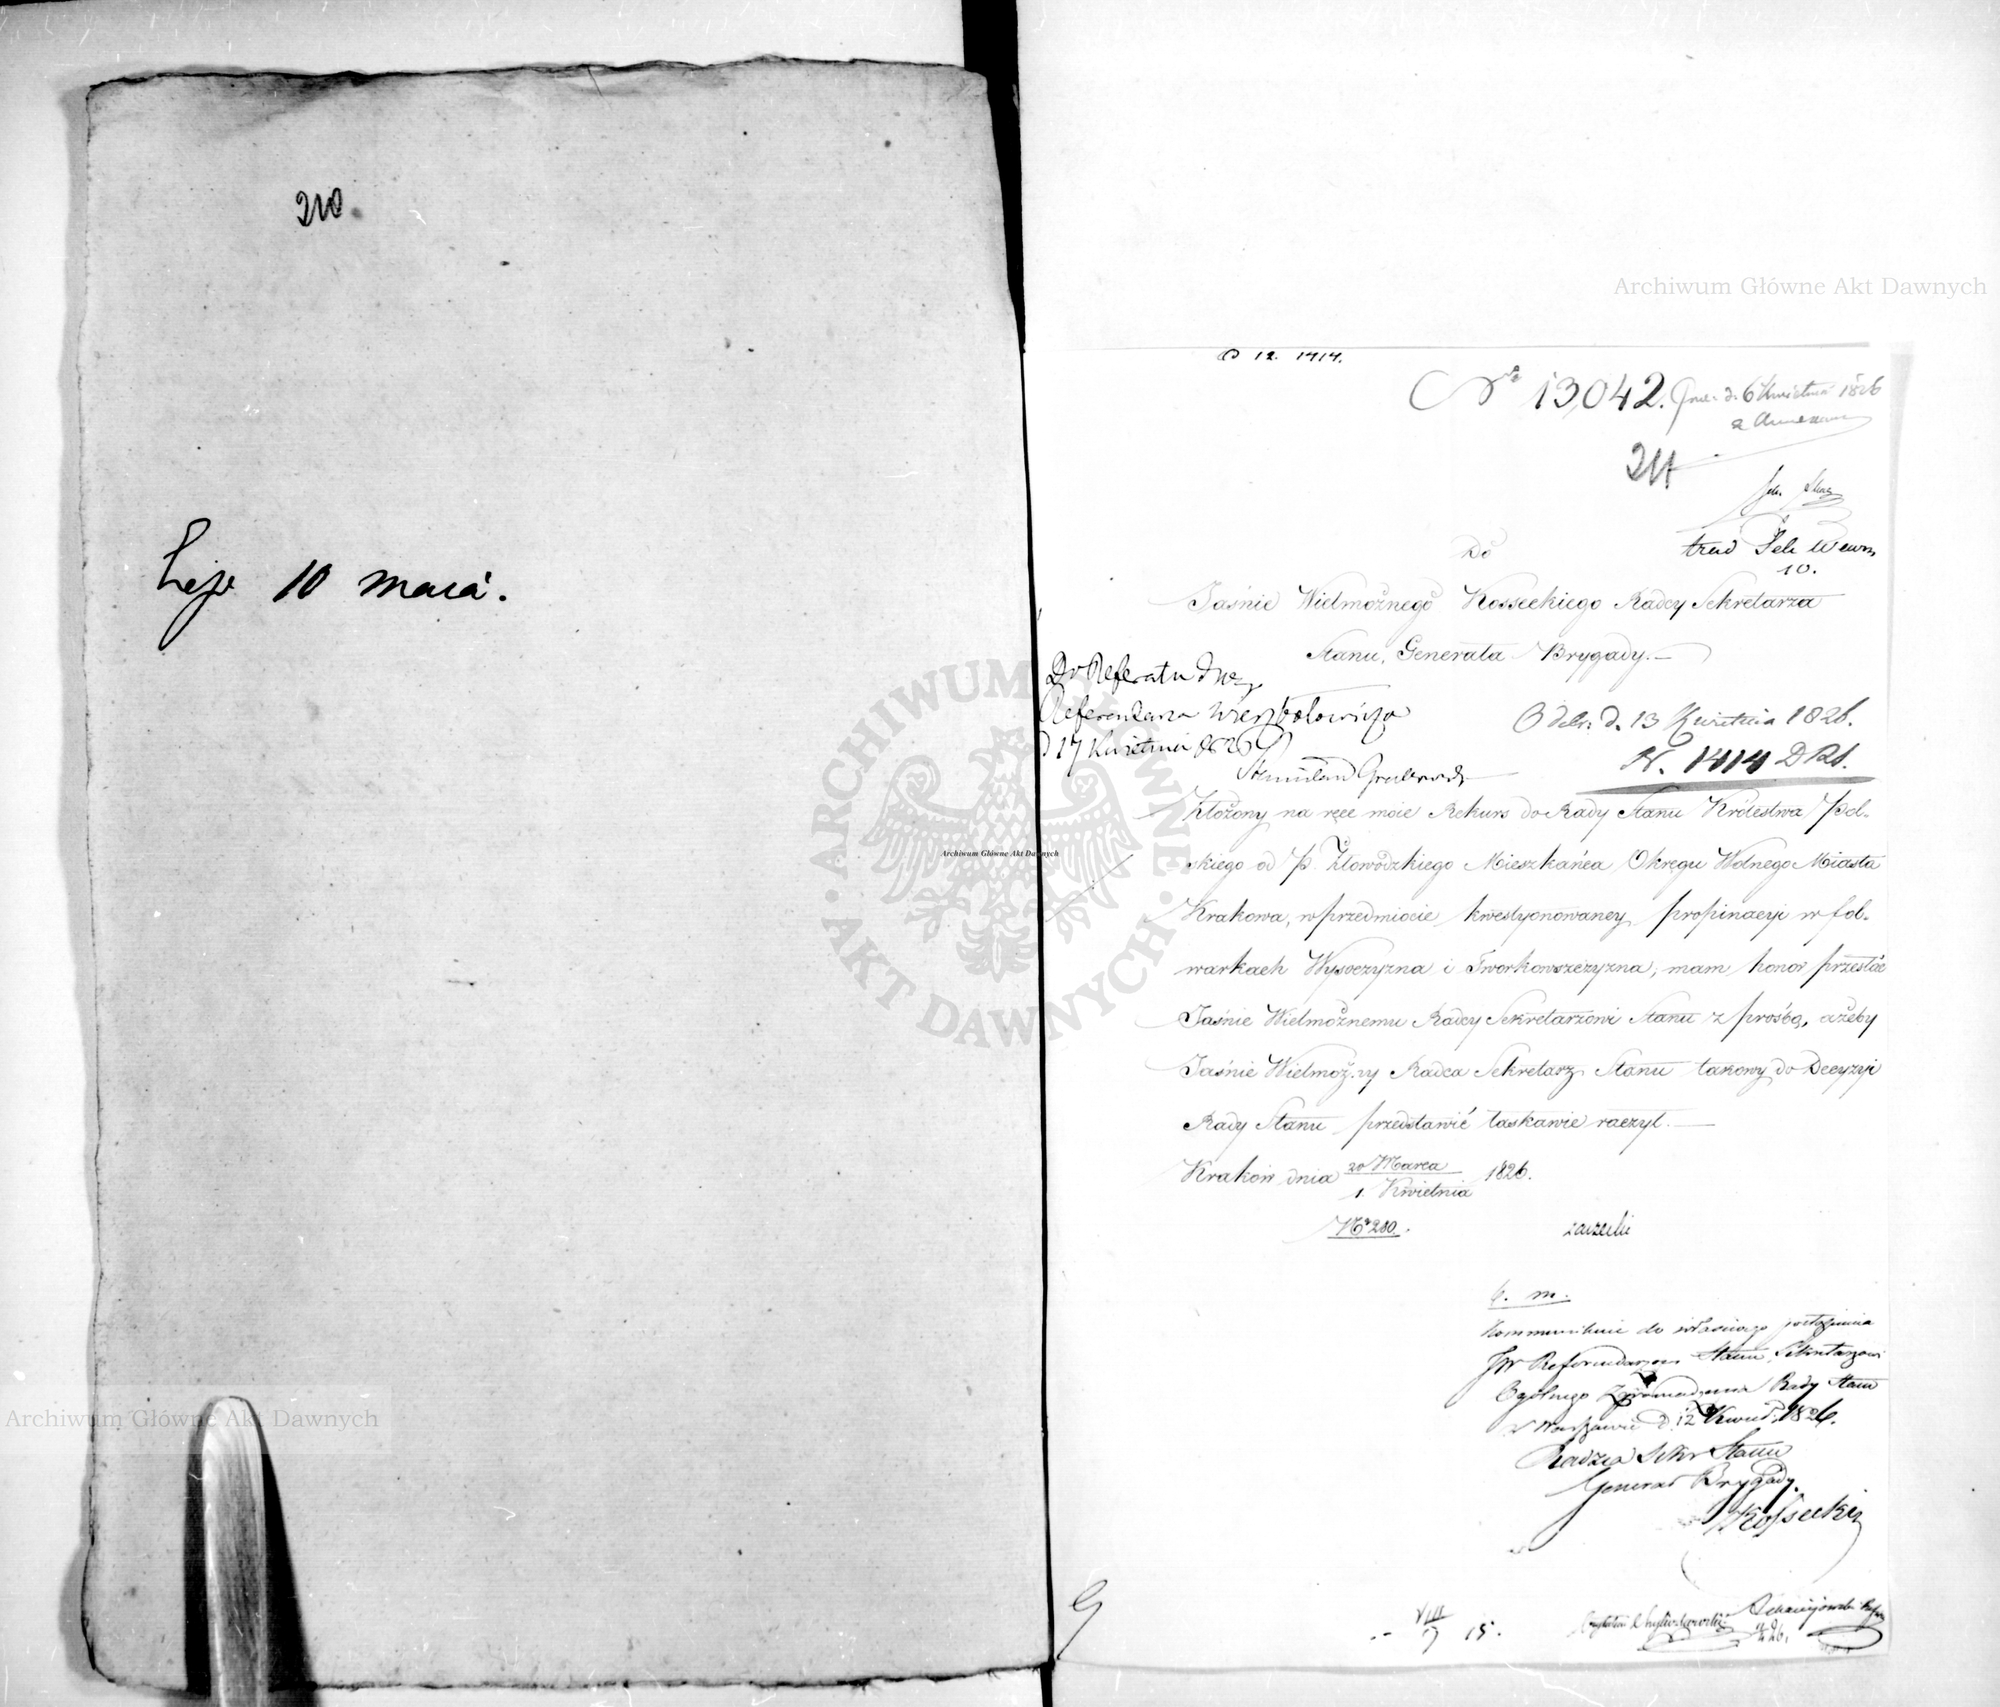 210.
10 maia.
D 12. 1414.
Nro 13,042. d. 6 Kwietnia 1826
211
Do
10.
Jaśnie Wielmożnego Kosseckiego Radcy Sekretarza
Stanu, Generała Brygady.—
Do Referatu JWgo
Referendarza Wierzbołowicza
d 17 Kwietnia 1826
Odebr: d. 13 Kwietnia 1826.
N. 1414 DRS.
Złożony na ręce moie Rekurs do Rady Stanu Królestwa Pol-
skiego od P. Złowodzkiego Mieszkańca Okręgu Wolnego Miasta
Krakowa, w przedmiocie kwestyonowaney propinacyi w fol-
warkach Wysoczyzna i Tworkowszczyzna, mam honor przesłać
Jaśnie Wielmożnemu Radcy Sekretarzowi Stanu z prośbą, ażeby
Jaśnie Wielmożny Radca Sekretarz Stanu takowy do Decyzyi
Rady Stanu przedstawić łaskawie raczył.—
Kraków dnia 20 Marca / 1. Kwietnia 1826.
Nr 280.
zarzecki
b. m.
Kommunikuie do właściwego położenia
JW Referendarzowi Stanu, Sekretarzowi
Ogólnego Zgromadzenia Rady Stanu
w Warszawie d. 12 Kwiet: 1826.
Radzca Sekr Stanu
Generał Brygady
Kossecki
VIII
15.
Archiwum Główne Akt Dawnych
Archiwum Główne Akt Dawnych
Archiwum Główne Akt Dawnych
ARCHIWUM GŁÓWNE · AKT DAWNYCH ·